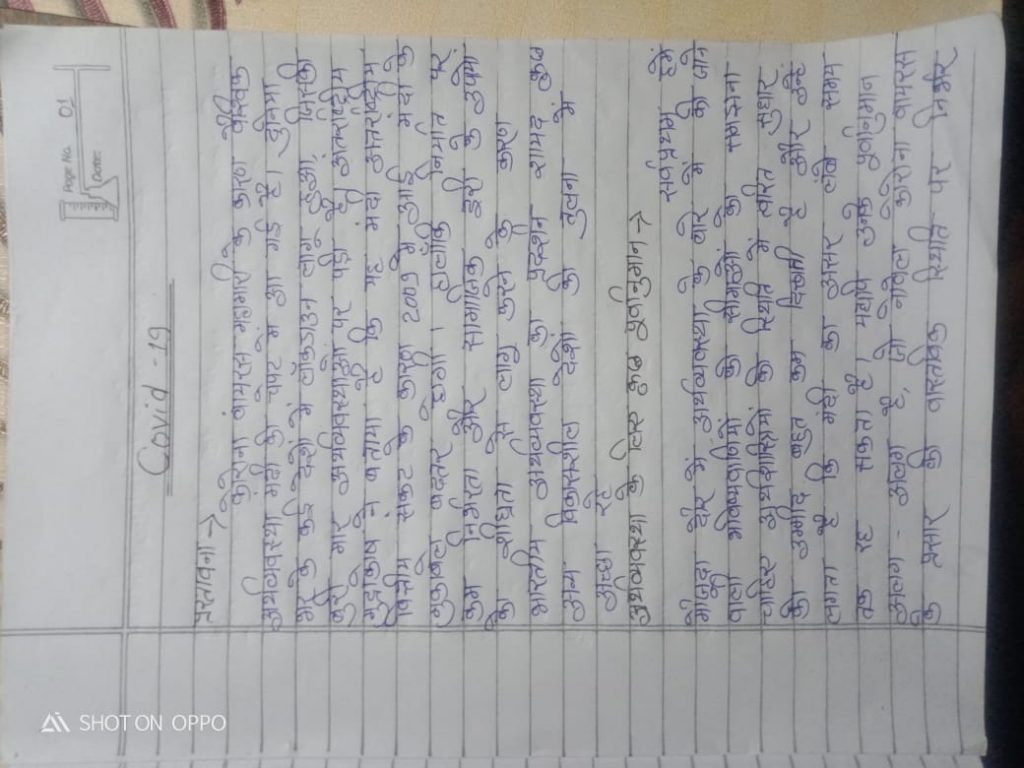 Page No. 01
Date:
Covid -19
प्रस्तावना →
कोरोना वायरस महामारी के कारण वैश्विक
अर्थव्यवस्था मंदी की चपेट में आ गई है। दुनिया
भर के कई देशों में लॉकडाउन लागू हुआ, जिसकी
बुरी मार अर्थव्यवस्थाओं पर पड़ी है। अंतरराष्ट्रीय
मुद्राकोष ने बताया है कि यह मंदी अंतरराष्ट्रीय
वित्तीय संकट के कारण 2009 में आई मंदी के
मुकाबले बदतर होगी। हालांकि निर्यात पर
कम निर्भरता और सामाजिक दूरी के उपायों
के शीघ्रता से लागू करने के कारण
भारतीय अर्थव्यवस्था का प्रदर्शन शायद कुछ
अन्य विकासशील देशों की तुलना में
अच्छा रहे
अर्थव्यवस्था के लिए कुछ पूर्वानुमान →
सर्वप्रथम हमें
मौजूदा दौर में अर्थव्यवस्था के बारे में की जाने
वाली भविष्यवाणियों की सीमाओं को समझना
चाहिए। अर्थशास्त्रियों की स्थिति में त्वरित सुधार
की उम्मीद बहुत कम दिखती है और उन्हें
लगता है कि मंदी का असर लंबे समय
तक रह सकता है, यद्यपि उनके पूर्वानुमान
अलग-अलग हैं, जो नोवेल कोरोना वायरस
के प्रसार की वास्तविक स्थिति पर निर्भर
SHOT ON OPPO